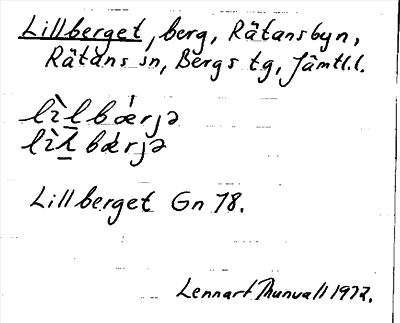 Lillberget, berg, Rätansbyn,
Rätans sn, Bergs tg, Jämtl.l.
lìl bǽrjə
lìl bǽrjə
Lillberget Gn 78.
Lennart Thunvall 1972.